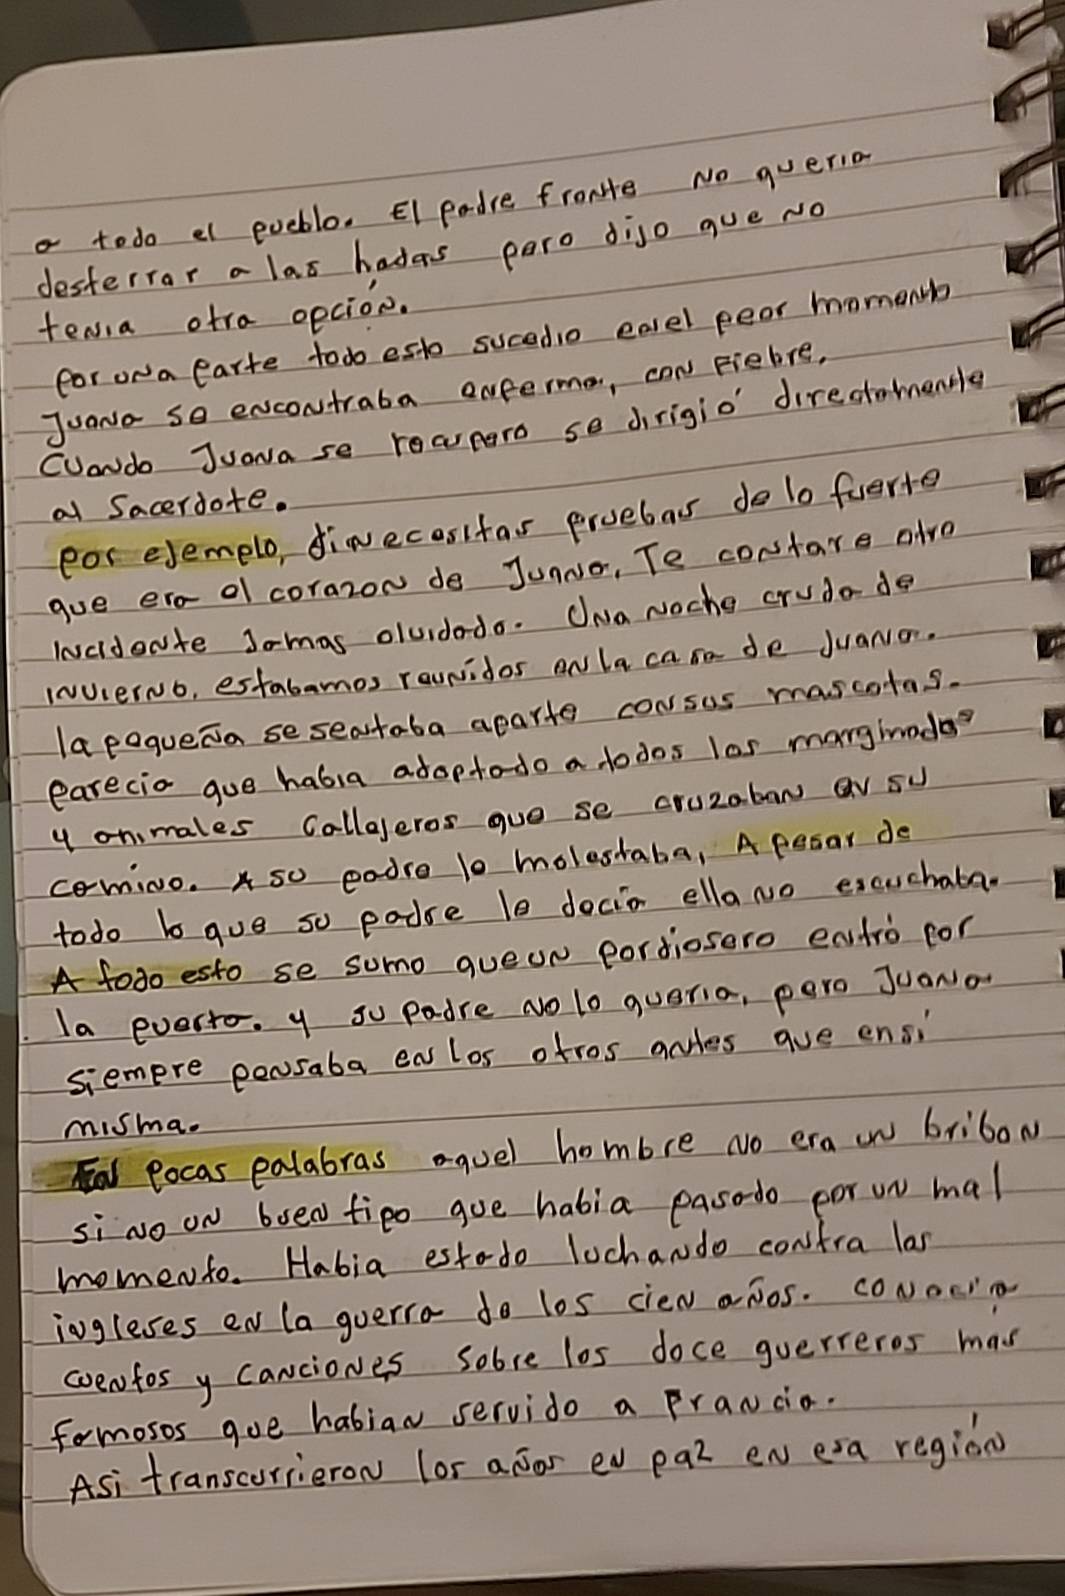 a todo el pueblo. El padre fronte No queria
desterrar a las hadas pero dijo que no
tenia otra opción.
por una parte todo esto sucedio en el peor momento
Juana se encontraba enferma, con fiebre.
Cuando Juana se recupero se dirigió directamente
al Sacerdote.
por ejemplo, si necesitas pruebas de lo fuerte
que era el corazon de Juana. Te contare otro
incidente Jamas olvidado. Una noche cruda de
invierno, estabamos reunidos en la casa de Juana.
la pequeña se sentaba aparte con sus mascotas.
parecia que habia adoptado a todos los marginados
y animales Callejeros que se cruzaban en su
camino. A su padre lo molestaba, A pesar de
todo lo que su padre le decia ella no escuchaba.
A todo esto se sumo que un pordiosero entró por
la puerta. y su padre no lo queria, pero Juana
siempre pensaba en los otros antes que en sí
misma.
En pocas palabras aquel hombre no era un bribon
si no un buen tipo que habia pasado por un mal
momento. Habia estado luchando contra las
ingleses en la guerra de los cien años. conocia
cuentos y canciones sobre los doce guerreros más
famosos que habian servido a Francia.
Asi transcurrieron los años en paz en esa región